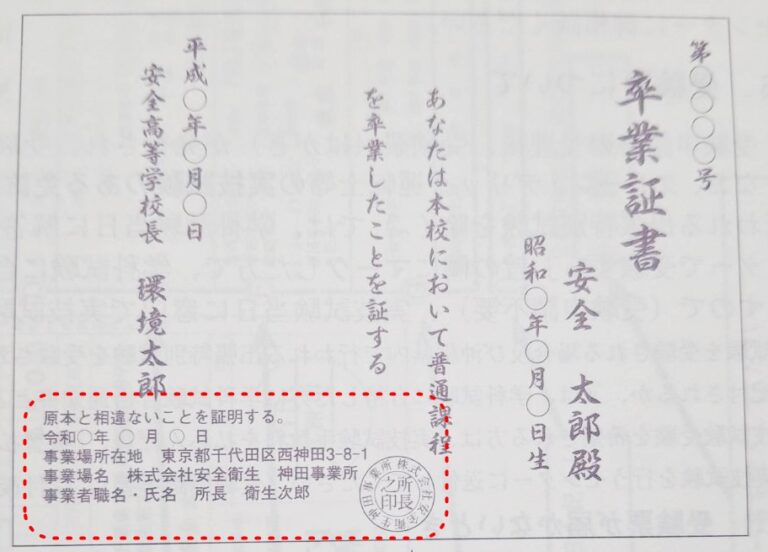 第〇〇〇〇号
卒業証書
安全 太郎殿
昭和〇年〇月〇日生
あなたは本校において普通課程
を卒業したことを証する
平成〇年〇月〇日
安全高等学校長 環境太郎
原本と相違ないことを証明する。
令和〇年 〇 月 〇 日
事業場所在地 東京都千代田区西神田3-8-1
事業場名 株式会社安全衛生 神田事業所
事業者職名・氏名 所長 衛生次郎
株式会社安全衛生神田事業所
所長
之印